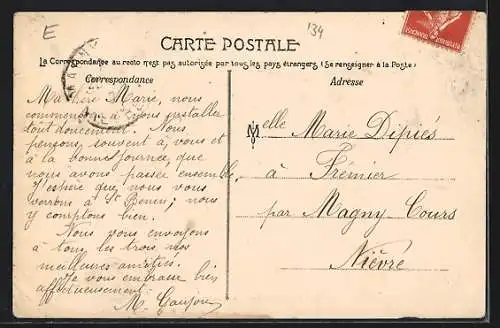 E
134
CARTE POSTALE
La Correspondance au recto n'est pas autorisée par tous les pays étrangers (Se renseigner à la Poste)
Correspondance
Adresse
Ma chère Marie, nous
commençons à nous installer
tout doucement. Nous
pensons souvent à vous et
à la bonne journée que
nous avons passée ensemble.
J'espère que nous vous
verrons à St Benin; nous
y comptons bien.
Nous vous envoyons
à tous les trois nos
meilleures amitiés.
Je vous embrasse bien
affectueusement.
M.
Melle Marie Dipiés
à Frémier
par Magny-Cours
Nièvre